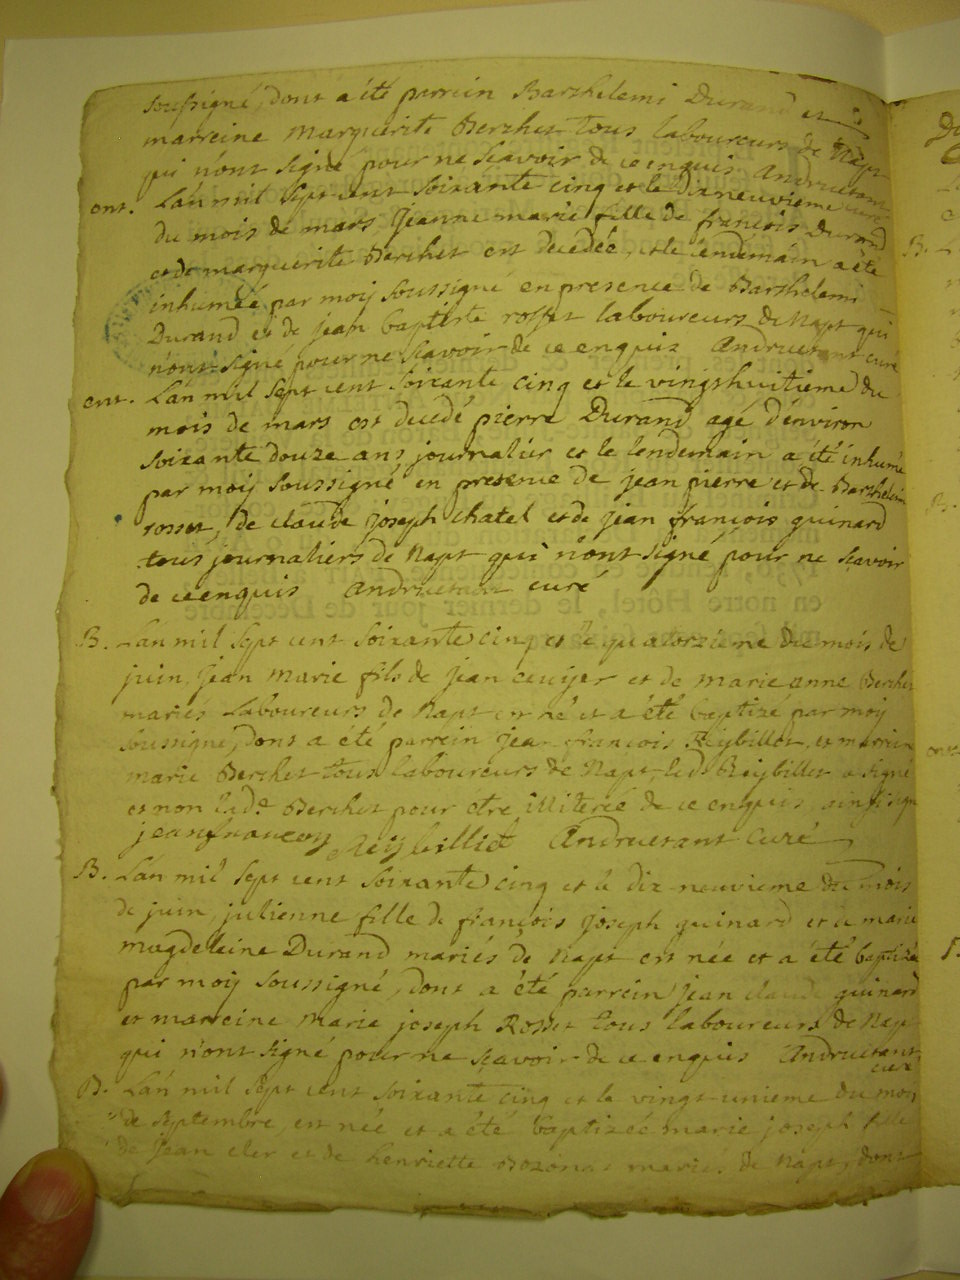 soussigné, dont a été parrein Barthelemi Durand et
marreine marguerite Berthet tous laboureurs de Napt
qui n'ont signé pour ne scavoir de ce enquis Andruetant
curé
ent. L'an mil sept cent soixante cinq et le dixneuvieme
du mois de mars jeanne marie fille de françois Durand
et de marguerite Berthet est decedée, et le lendemain a été
inhumée par moy soussigné en presence de Barthelemi
Durand et de jean baptiste rosset laboureurs de Napt qui
n'ont signé pour ne scavoir de ce enquis Andruetant curé
ent. L'an mil sept cent soixante cinq et le vingthuitieme du
mois de mars est decedé pierre Durand agé d'environ
soixante douze ans journalier et le lendemain a été inhumé
par moy soussigné en presence de jean pierre et de Barthelemi
rosset, de claude joseph chatel et de jean françois guinard
tous journaliers de Napt qui n'ont signé pour ne scavoir
de ce enquis Andruetant curé
B. L'an mil sept cent soixante cinq et le quatorzieme du mois de
juin, jean marie fils de jean et de marie anne Berthet
mariés laboureurs de Napt est né et a été baptizé par moy
soussigné, dont a été parrein jean françois Reybillet, et marreine
marie Berthet tous laboureurs de Napt, led. Reybillet a signé
et non lad.e Berthet pour être illiterée de ce enquis, ainsi signé
jean francoy Reybilliet Andruetant Curé
B. L'an mil sept cent soixante cinq et le dix neuvieme du mois
de juin, julienne fille de françois joseph guinard et de marie
magdeleine Durand mariés de Napt est née et a été baptizée
par moy soussigné, dont a été parrein jean claude guinard
et marreine marie joseph Rosset tous laboureurs de Napt
qui n'ont signé pour ne scavoir de ce enquis Andruetant
curé
B. L'an mil sept cent soixante cinq et le vingt unieme du mois
de septembre, est née et a été baptizée marie joseph fille
de jean cler et de henriette Bozonat mariés de Napt, dont